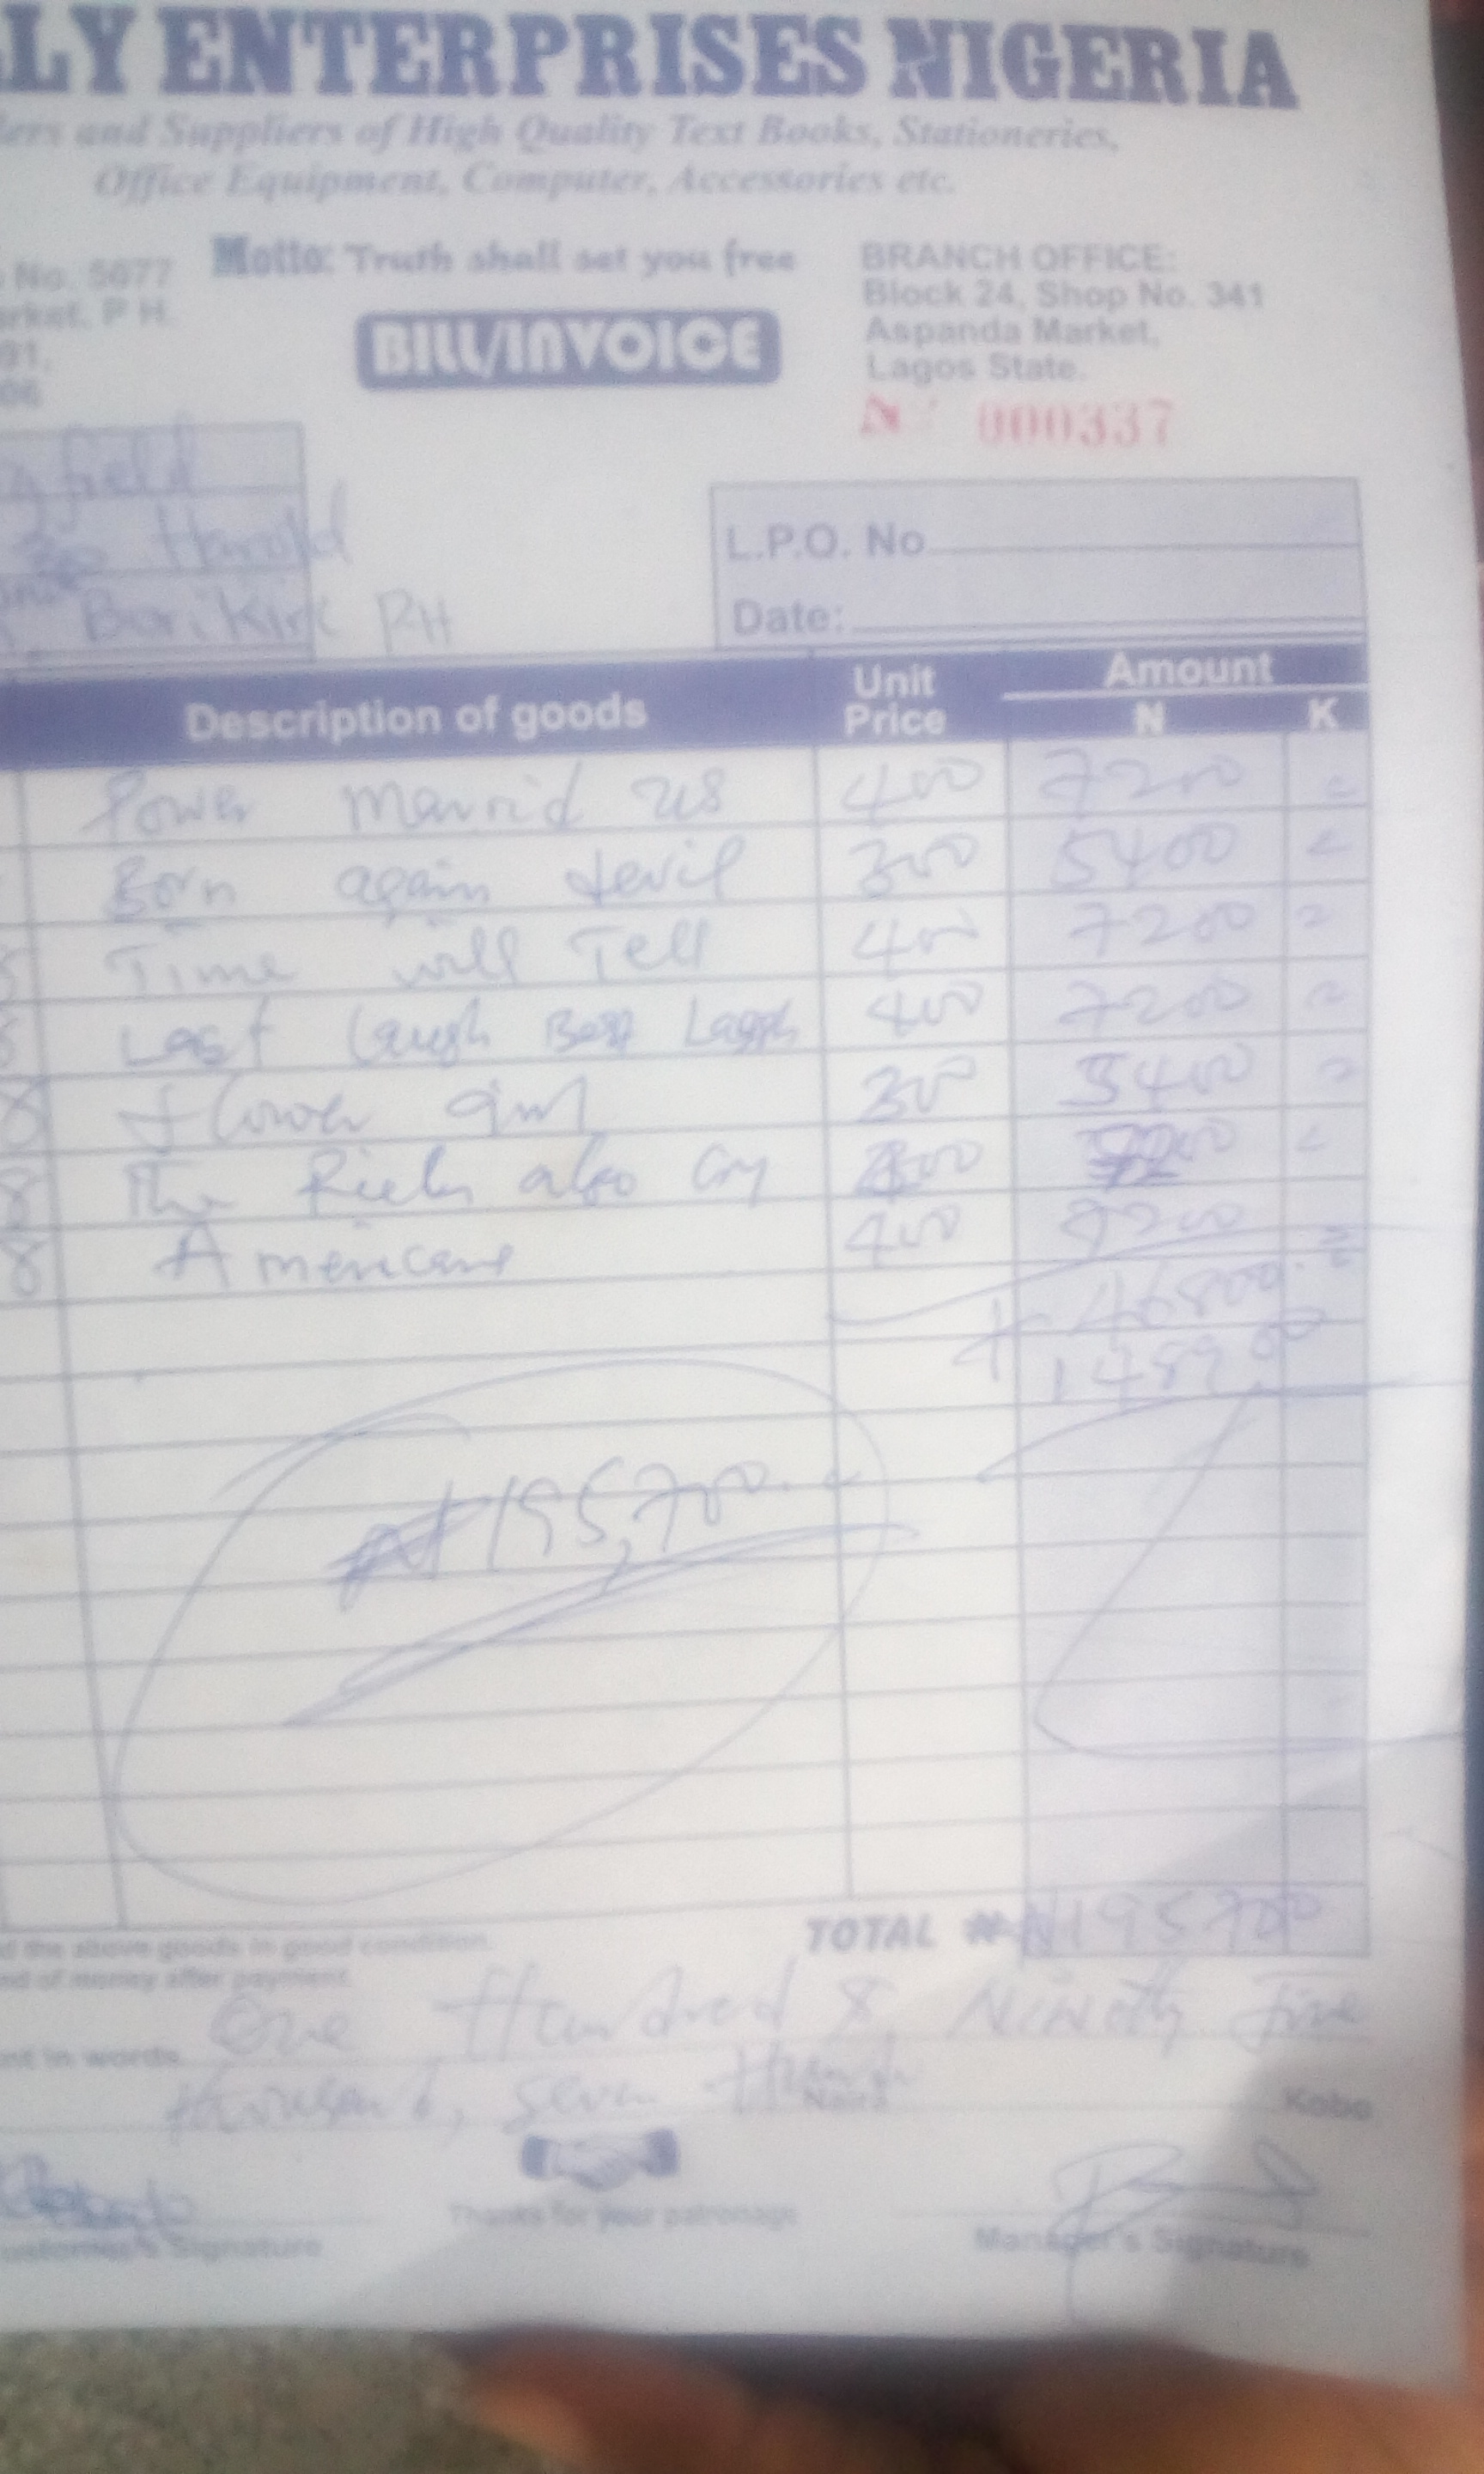 LY ENTERPRISES NIGERIA
lers and Suppliers of High Quality Text Books, Stationeries,
Office Equipment, Computer, Accessories etc.
No. 5677
rket, P H.
91,
06
Motto: Truth shall set you free
BILL/INVOICE
BRANCH OFFICE:
Block 24, Shop No. 341
Aspanda Market,
Lagos State.
Nº 000337
gfield
Harold
PH
L.P.O. No
Date:
Description of goods Unit Price Amount N K
Power marrid us 400 7200 =
Born again devil 300 5400 =
Time will Tell 400 7200 =
Last laugh Best Laugh 400 7200 =
8 flower girl 300 5400 =
8 The Rich also Cry
8 Americana 400 7200 =
46800
+ 148900
₦195,700. =
TOTAL ₦ ₦195700
d the above goods in good condition.
nd of money after payment.
nt in words One Hundred & Ninety Five
thousand, seven Hund
Naira Kobo
Thanks for your patronage
ustomer's Signature
Manager's Signature